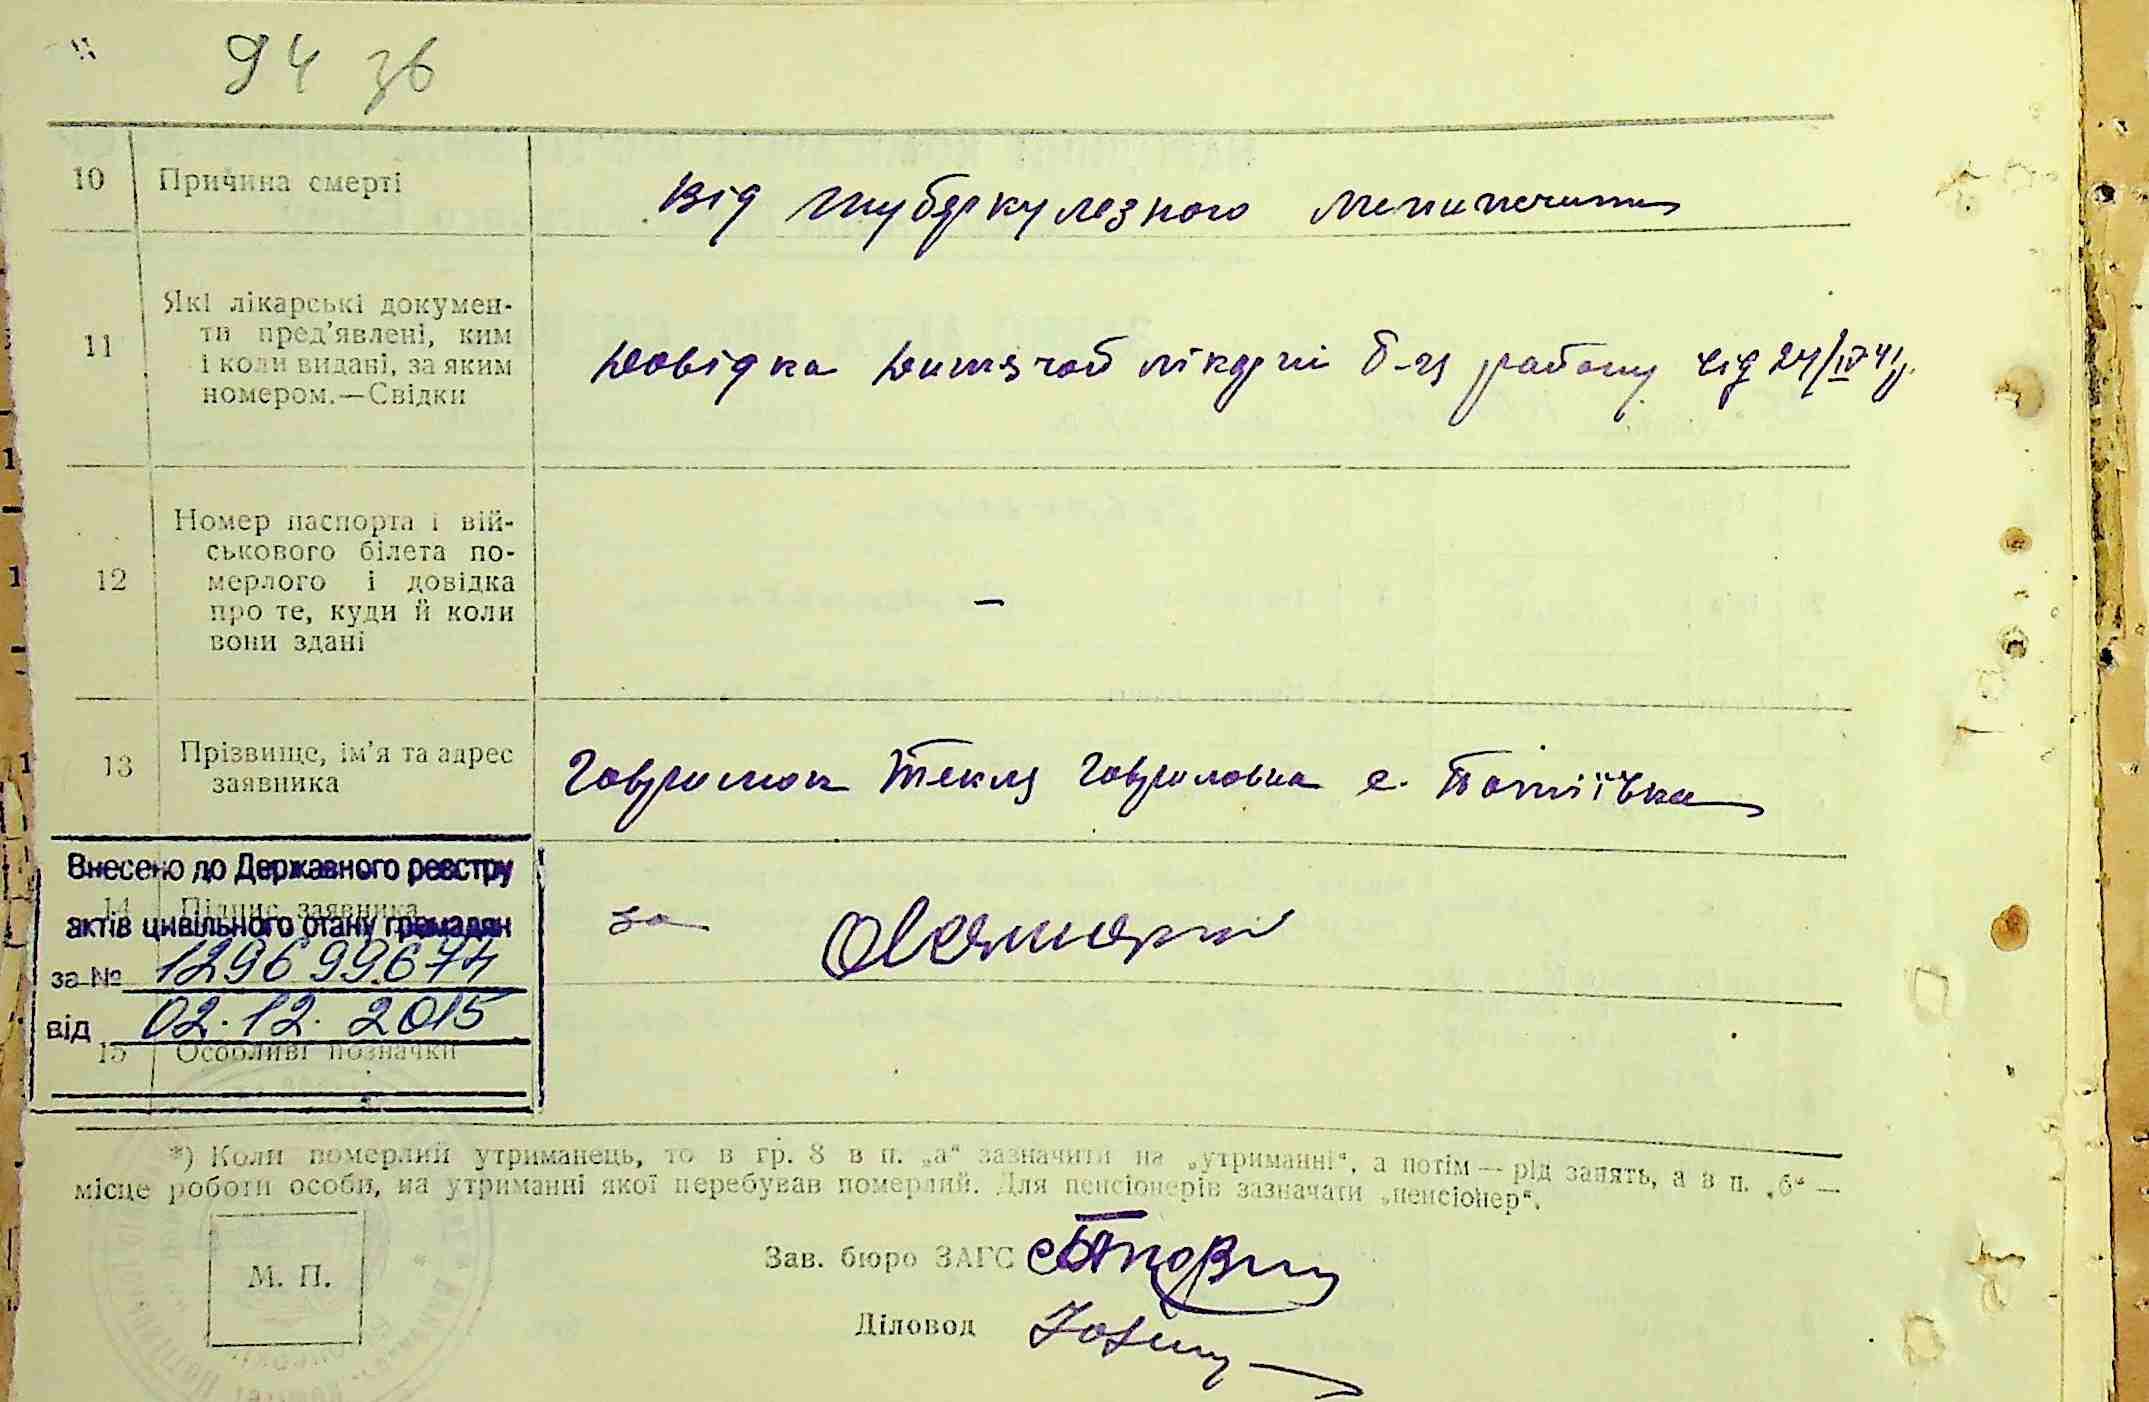 94 зв
10 Причина смерті Від туберкулезного менингита
11 Які лікарські докумен-
ти пред’явлені, ким
і коли видані, за яким
номером.—Свідки
Довідка Дитячої лікарні Б-ця району від 24/IV 41 р.
12 Номер паспорта і вій-
ськового білета по-
мерлого і довідка
про те, куди й коли
вони здані
–
13 Прізвище, ім’я та адрес
заявника
Гаврилюк Текля Гавриловна с. Потіївка
Внесено до Державного реєстру
14 Підпис заявника за
актів цивільного стану громадян
за № 129699674
від 02.12.2015
15 Особливі позначки
*) Коли померлий утриманець, то в гр. 8 в п. „а“ зазначити на „утриманні“, а потім — рід занять, а в п. „б“ —
місце роботи особи, на утриманні якої перебував померлий. Для пенсіонерів зазначати „пенсіонер“.
М. П.
Зав. бюро ЗАГС
Діловод